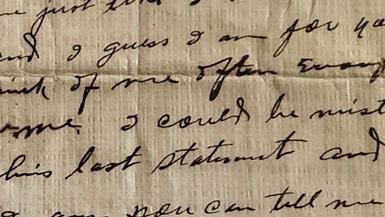 just like
and I guess I am for yo
ink of me often
me I could be mist
his last statement and
you can tell me